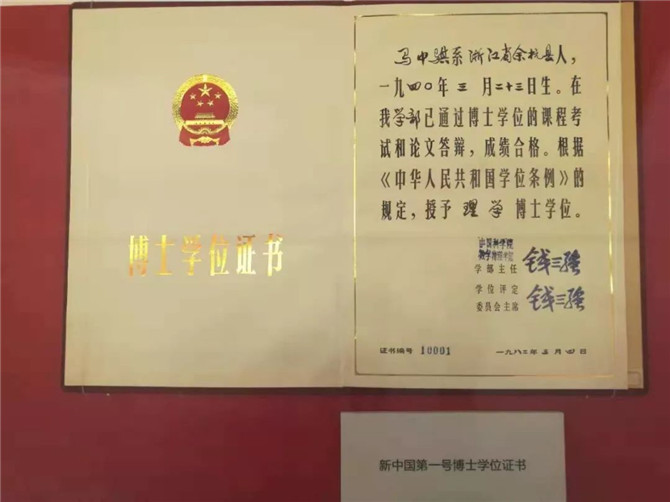 博士学位证书
马中骐系浙江省余杭县人，
一九四〇年三月二十三日生。在
我学部已通过博士学位的课程考
试和论文答辩，成绩合格。根据
《中华人民共和国学位条例》的
规定，授予理学博士学位。
中国科学院
数学物理学部
学部主任 钱三强
学位评定
委员会主席 钱三强
证书编号 10001
一九八三年五月四日
新中国第一号博士学位证书